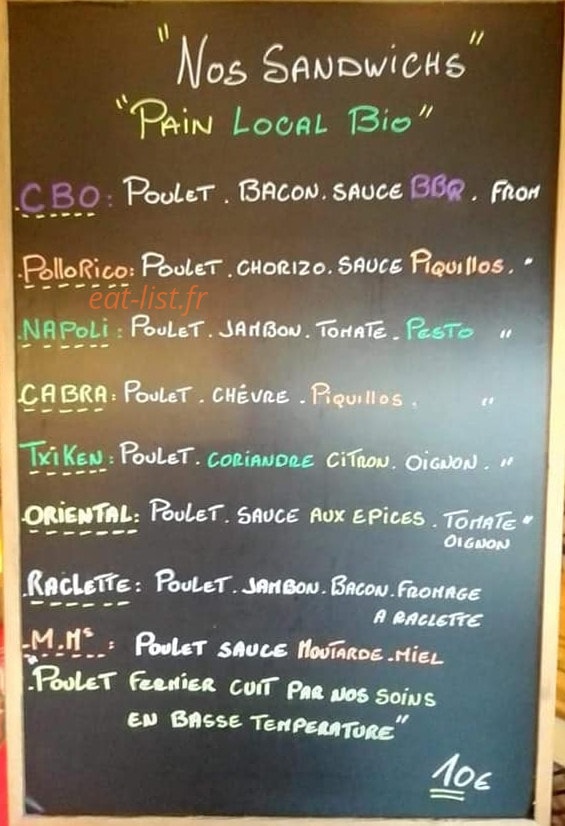 "Nos SANDWICHS"
"PAIN LOCAL Bio"
.CBO: POULET . BACON. SAUCE BBQ . FROM
.POLLORICO: POULET . CHORIZO. SAUCE PIQUILLOS. "
eat-list.fr
.NAPOLI: POULET . JAMBON . TOMATE . PESTO "
.CABRA: POULET . CHÈVRE . PIQUILLOS. "
.TXIKEN: POULET. CORIANDRE CITRON. OIGNON . "
.ORIENTAL: POULET. SAUCE AUX EPICES . TOMATE "
OIGNON
.RACLETTE: POULET. JAMBON. BACON. FROMAGE
A RACLETTE
.M.Ms : POULET SAUCE MOUTARDE.MIEL
".POULET FERMIER CUIT PAR NOS SOINS
EN BASSE TEMPERATURE"
10€